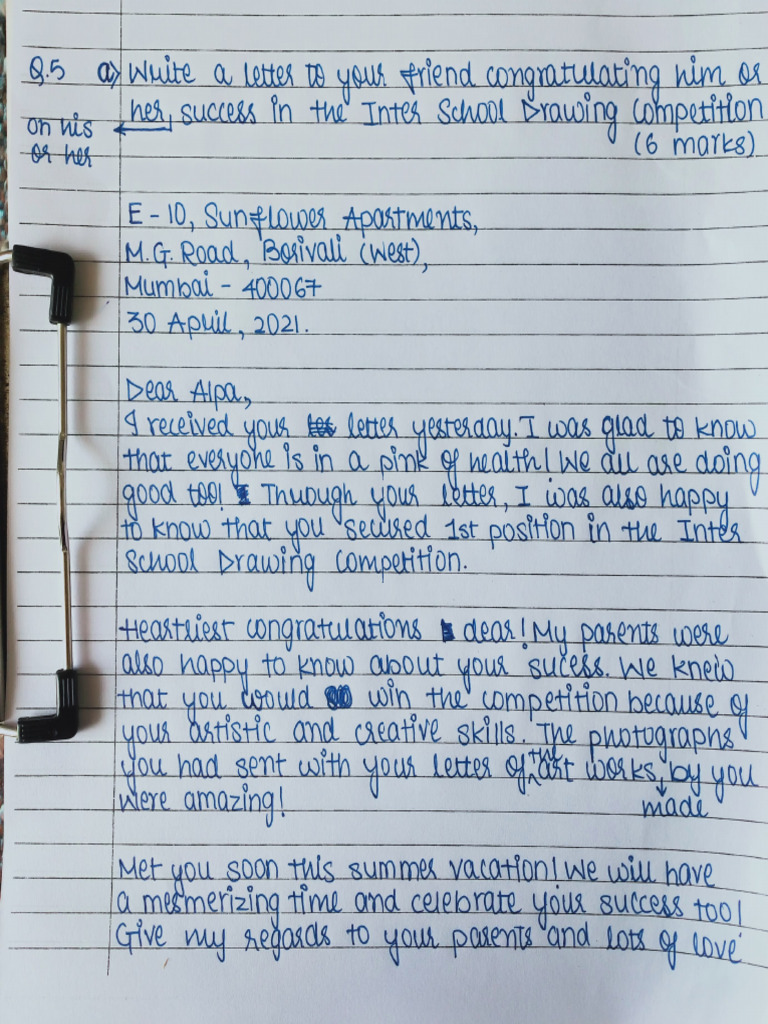 Q.5 a) Write a letter to your friend congratulating him or
her, success in the Inter School Drawing Competition
on his
or her
(6 marks)
E - 10, Sunflower Apartments,
M.G. Road, Borivali (West),
Mumbai - 400067
30 April, 2021.
Dear Alpa,
I received your letter yesterday. I was glad to know
that everyone is in a pink of health! We all are doing
good too! Through your letter, I was also happy
to know that you secured 1st position in the Inter
School Drawing Competition.
Heartiest congratulations dear! My parents were
also happy to know about your sucess. We knew
that you would win the competition because of
your artistic and creative skills. The photographs
you had sent with your letter of the art works, by you
made
were amazing!
Met you soon this summer vacation! We will have
a mesmerizing time and celebrate your success too!
Give my regards to your parents and lots of love